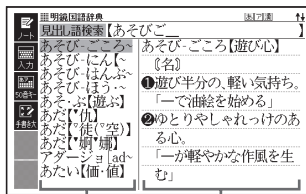 明鏡国語辞典
見出し語検索【あそびご__ 】
ノート
入力
50音キー
手書き大
あそび‐ごころ~
あそび‐にん【~
あそび‐はんぶ~
あそび‐ほう‐~
あそ・ぶ【遊ぶ】
あだ【▽仇】
あだ【▽徒(▽空)】
あだ【▽婀▽娜】
アダージョ[ad~
あたい【価・値】
あそび‐ごころ【遊び心】
〘名〙
❶遊び半分の、軽い気持ち。
「―で油絵を始める」
❷ゆとりやしゃれっけのあ
る心。
「―が軽やかな作風を生
む」